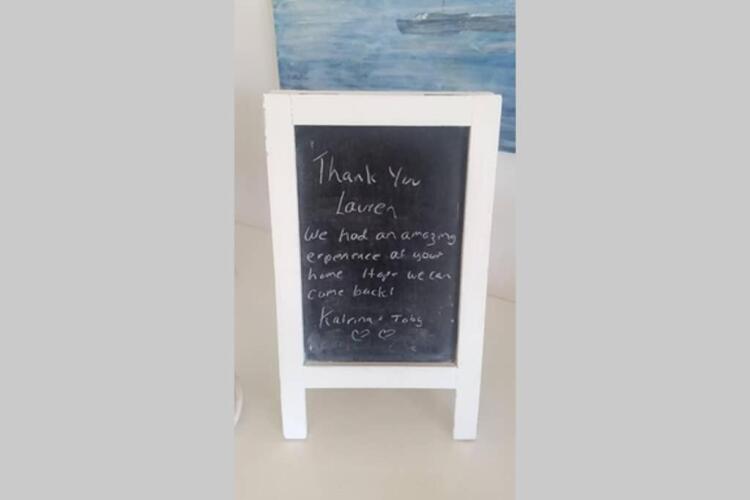 Thank You
Lauren
We had an amazing
experience at your
home Hope we can
come back!
Katrina + Toby